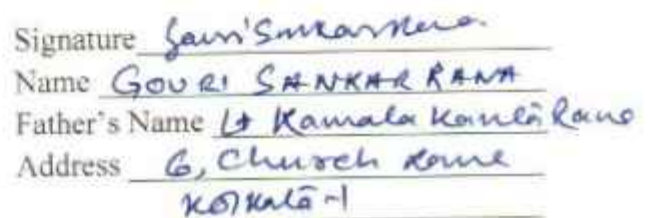 Signature Gouri Sankar Rana
Name GOURI SANKAR RANA
Father's Name Lt Kamala Kanta Rana
Address 6, Church Lane
Kolkata-1